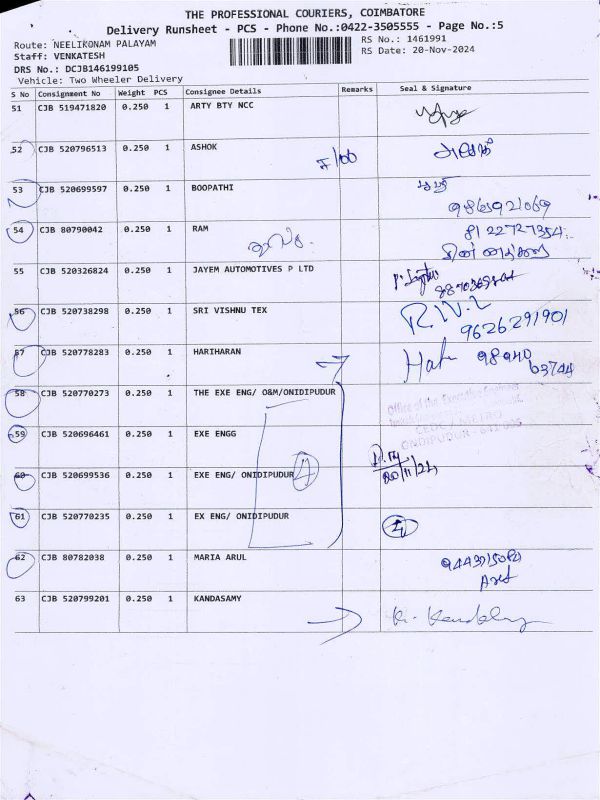 THE PROFESSIONAL COURIERS, COIMBATORE
Delivery Runsheet - PCS - Phone No.:0422-3505555 - Page No.:5
Route: NEELIKONAM PALAYAM
RS No.: 1461991
Staff: VENKATESH
RS Date: 20-Nov-2024
DRS No.: DCJB146199105
Vehicle: Two Wheeler Delivery
S No Consignment No Weight PCS Consignee Details Remarks Seal & Signature
51 CJB 519471820 0.250 1 ARTY BTY NCC
52 CJB 520796513 0.250 1 ASHOK
53 CJB 520699597 0.250 1 BOOPATHI
54 CJB 80790042 0.250 1 RAM 81 22727354
55 CJB 520326824 0.250 1 JAYEM AUTOMOTIVES P LTD
56 CJB 520738298 0.250 1 SRI VISHNU TEX
9626291901
57 CJB 520778283 0.250 1 HARIHARAN
98940
03744
58 CJB 520770273 0.250 1 THE EXE ENG/ O&M/ONIDIPUDUR
Office of the Executive Engineer
CEDC / METRO
59 CJB 520696461 0.250 1 EXE ENGG
60 CJB 520699536 0.250 1 EXE ENG/ ONIDIPUDUR 4
20/11/24
61 CJB 520770235 0.250 1 EX ENG/ ONDIPUDUR
62 CJB 80782038 0.250 1 MARIA ARUL
63 CJB 520799201 0.250 1 KANDASAMY